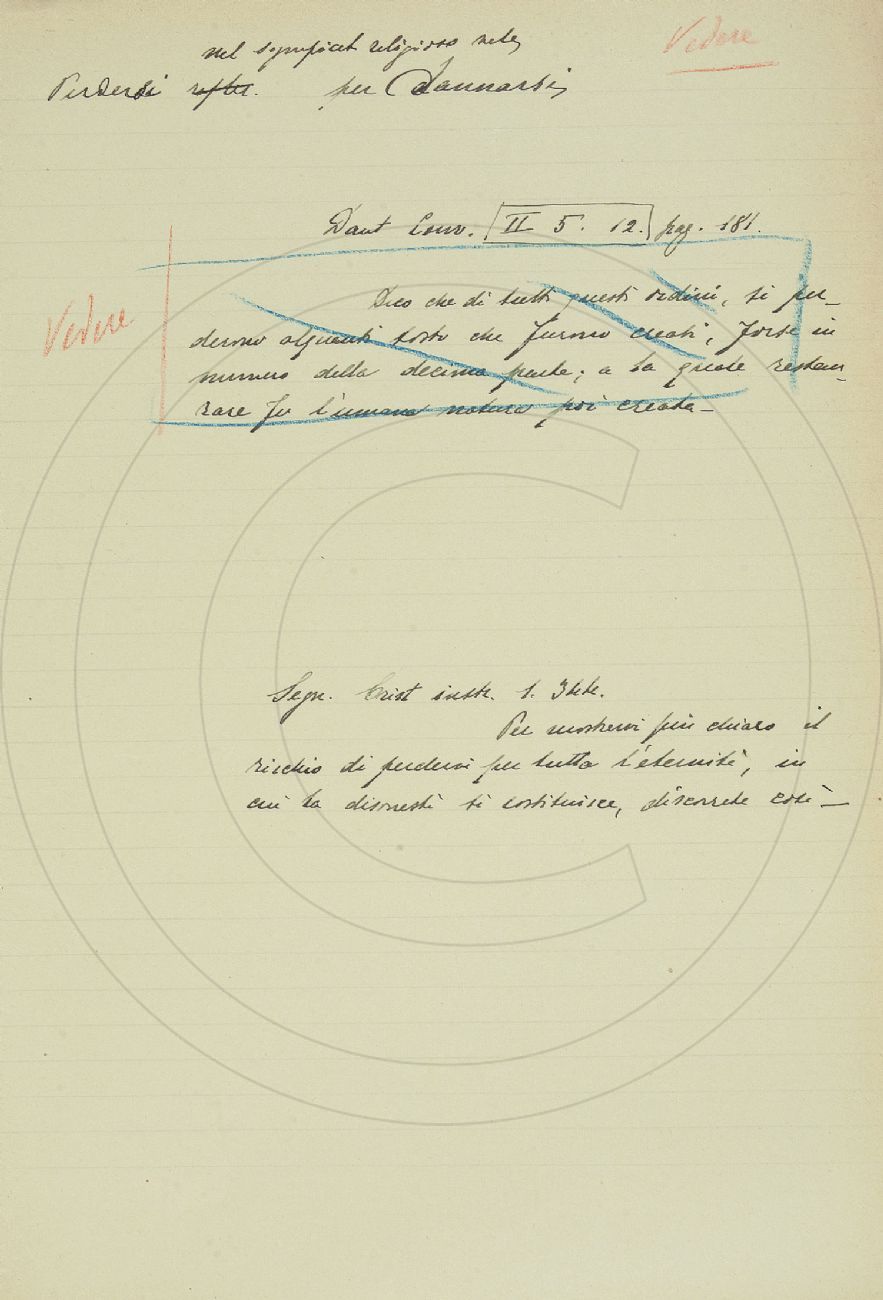 Vedere
nel significat religioso vale
Perdersi rifless. per Dannarsi
Dant Conv. II 5. 12. pag. 181.
Vedere
Dico che di tutti questi ordini, si per-
derono alquanti tosto che furono creati, forse in
numero della decima parte; a la quale restau-
rare fu l'umana natura poi creata -
Segn. Crist instr. 1.
Per mostrarvi più chiaro il
rischio di perdervi per tutta l'eternità, in
cui la disonestà vi costituisce, discorrete così -